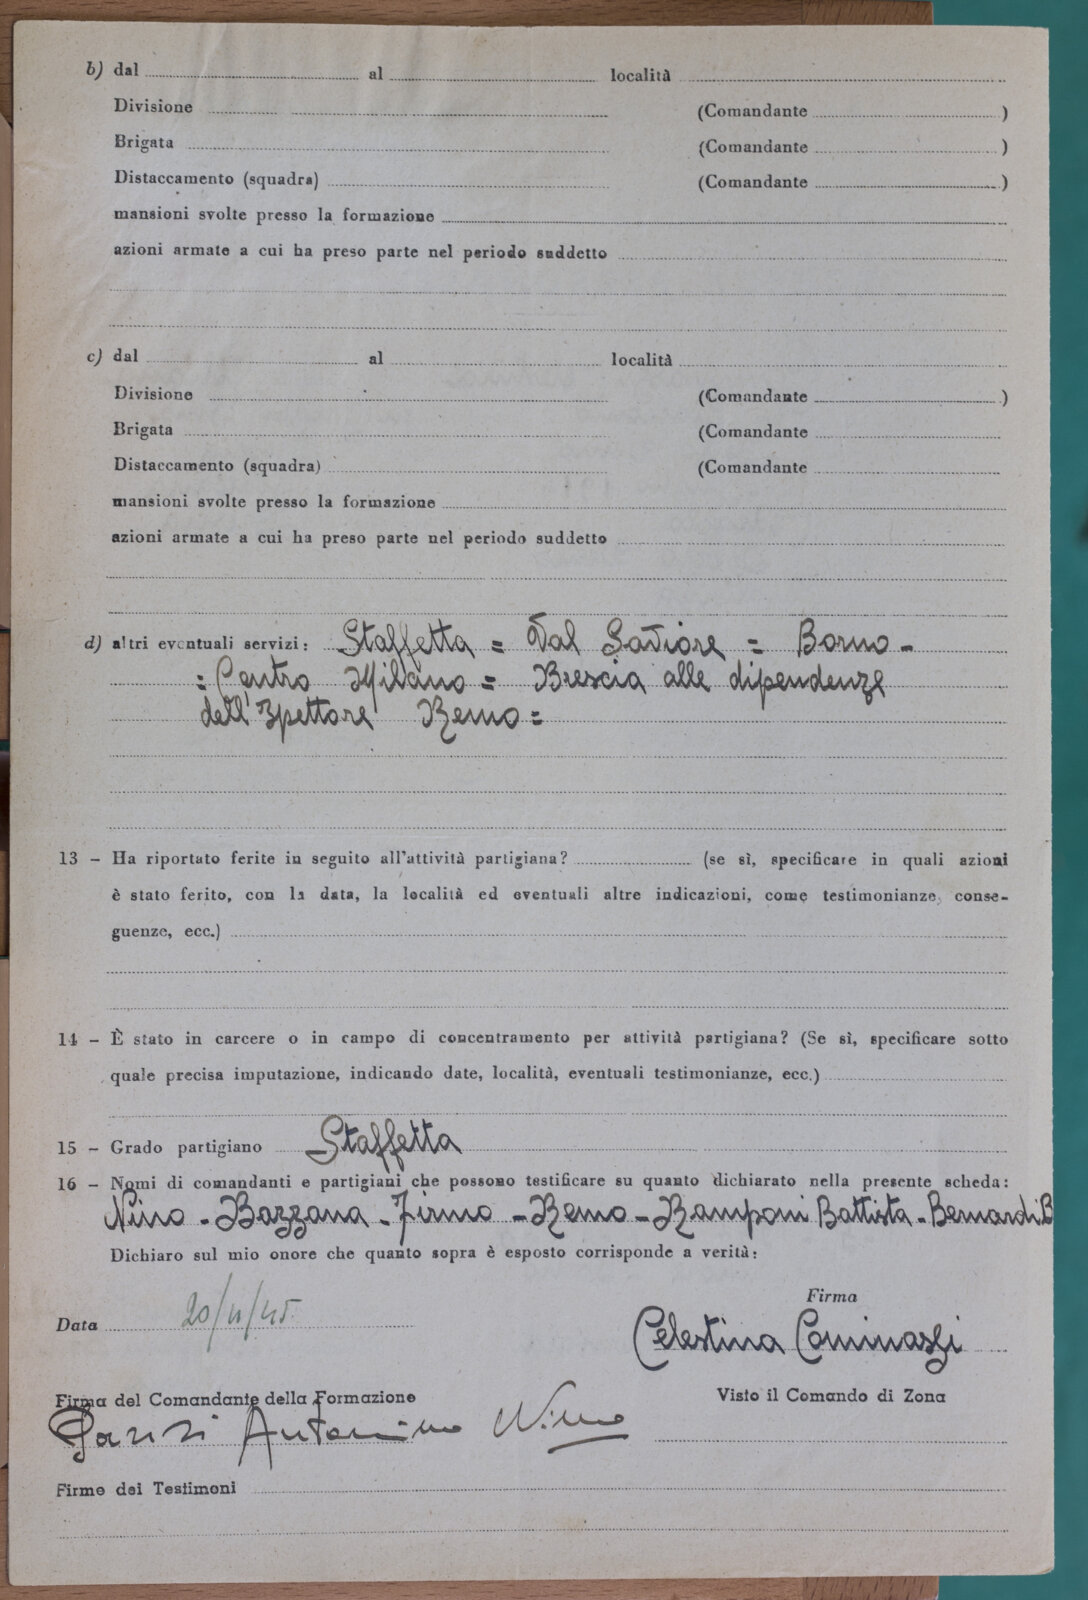 b) dal al località
Divisione (Comandante )
Brigata (Comandante )
Distaccamento (squadra) (Comandante )
mansioni svolte presso la formazione
azioni armate a cui ha preso parte nel periodo suddetto
c) dal al località
Divisione (Comandante )
Brigata (Comandante
Distaccamento (squadra) (Comandante
mansioni svolte presso la formazione
azioni armate a cui ha preso parte nel periodo suddetto
d) altri eventuali servizi: Staffetta = Val Saviore = Borno -
= Centro Milano = Brescia alle dipendenze
dell'Ispettore Remo =
13 - Ha riportato ferite in seguito all'attività partigiana? (se sì, specificare in quali azioni
è stato ferito, con la data, la località ed eventuali altre indicazioni, come testimonianze, conse-
guenze, ecc.)
14 - È stato in carcere o in campo di concentramento per attività partigiana? (Se sì, specificare sotto
quale precisa imputazione, indicando date, località, eventuali testimonianze, ecc.)
15 - Grado partigiano Staffetta
16 - Nomi di comandanti e partigiani che possono testificare su quanto dichiarato nella presente scheda:
Nino - Bazzana - Firmo - Remo - Ramponi Battista - Bernardi B
Dichiaro sul mio onore che quanto sopra è esposto corrisponde a verità:
Firma
Data Celestina
Firma del Comandante della Formazione Visto il Comando di Zona
Antonino Nino
Firme dei Testimoni